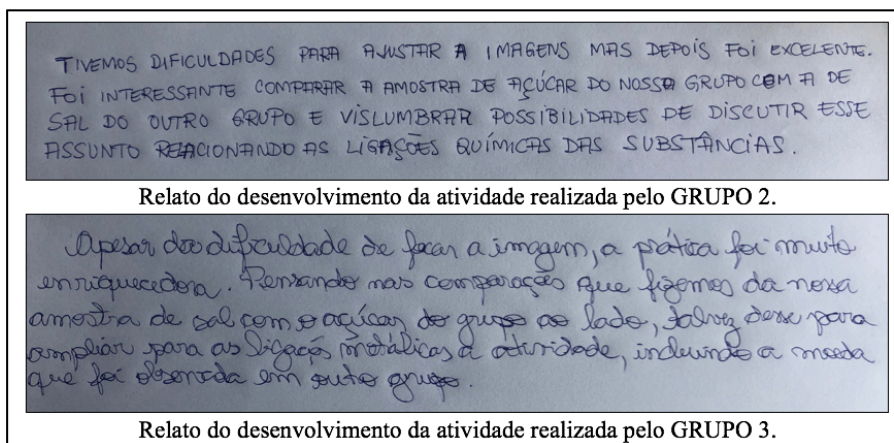 TIVEMOS DIFICULDADES PARA AJUSTAR A IMAGENS MAS DEPOIS FOI EXCELENTE.
FOI INTERESSANTE COMPARAR A AMOSTRA DE AÇÚCAR DO NOSSO GRUPO COM A DE
SAL DO OUTRO GRUPO E VISLUMBRAR POSSIBILIDADES DE DISCUTIR ESSE
ASSUNTO RELACIONANDO AS LIGAÇÕES QUÍMICAS DAS SUBSTÂNCIAS.
Relato do desenvolvimento da atividade realizada pelo GRUPO 2.
Apesar da dificuldade de focar a imagem, a prática foi muito
enriquecedora. Pensando nas comparações que fizemos da nossa
amostra de sal com o açúcar do grupo ao lado, talvez desse para
ampliar para as ligações metálicas a atividade, incluindo a moeda
que foi observada em outro grupo.
Relato do desenvolvimento da atividade realizada pelo GRUPO 3.